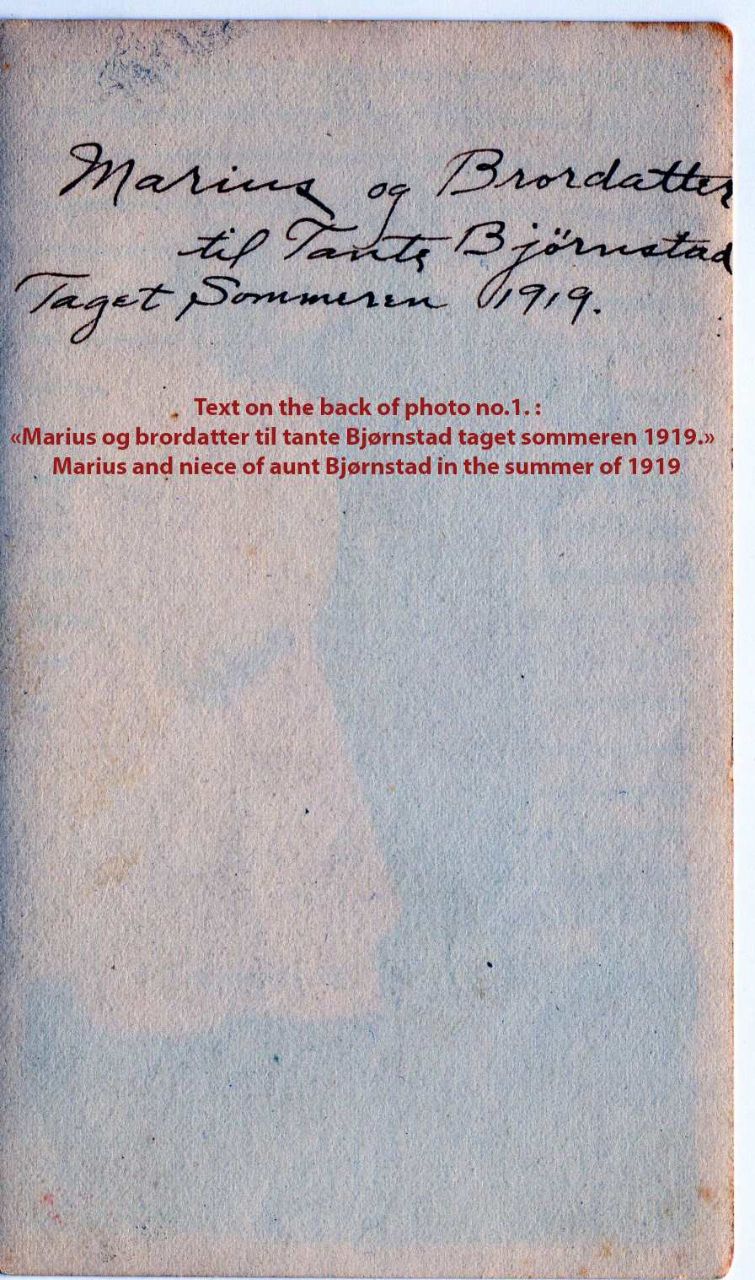 Marius og Brordatter
til Tante Bjørnstad
Taget Sommeren 1919.
Text on the back of photo no.1. :
«Marius og brordatter til tante Bjørnstad taget sommeren 1919.»
Marius and niece of aunt Bjørnstad in the summer of 1919